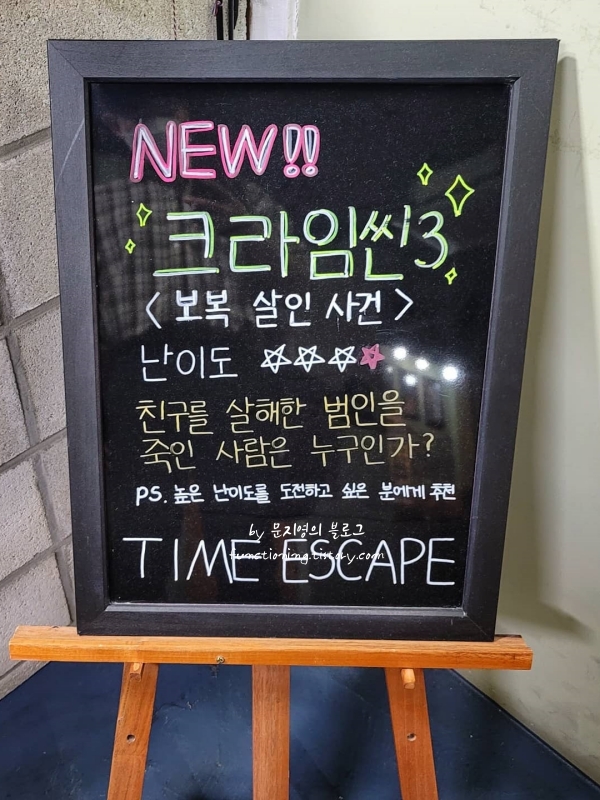 NEW!!
크라임씬3
< 보복 살인 사건 >
난이도 ☆☆☆★
친구를 살해한 범인을
죽인 사람은 누구인가?
PS. 높은 난이도를 도전하고 싶은 분에게 추천
by 문지영의 블로그
functioning.tistory.com
TIME ESCAPE